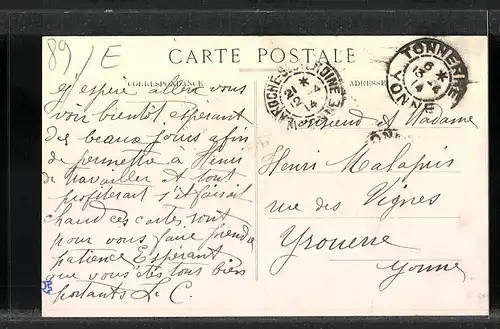 89/E
CARTE POSTALE
CORRESPONDANCE
ADRESSE
TONNERRE
6 *
13 -4
14
YONNE
* 
21 -4
12
14
j'espère aller vous
voir bientôt, espérant
des beaux jours afin
de permettre à Henri
de travailler et tout
profiterait s'il faisait
chaud ces cartes sont
pour vous faire prendre
patience Espérant
que vous êtes tous bien
portants L. C.
Monsieur et Madame
Henri Malapris
rue des Vignes
Yrouerre
Yonne